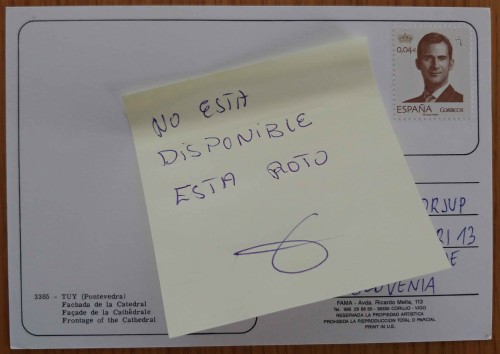 0,04€
ESPAÑA CORREOS
NO ESTA
DISPONIBLE
ESTA ROTO
RI 13
VENIA
3365 - TUY (Pontevedra)
Fachada de la Catedral
Façade de la Cathédrale
Frontage of the Cathedral
FAMA - Avda. Ricardo Mella, 113
RESERVADA LA PROPIEDAD ARTISTICA
PROHIBIDA LA REPRODUCCION TOTAL O PARCIAL
PRINT IN U.S.